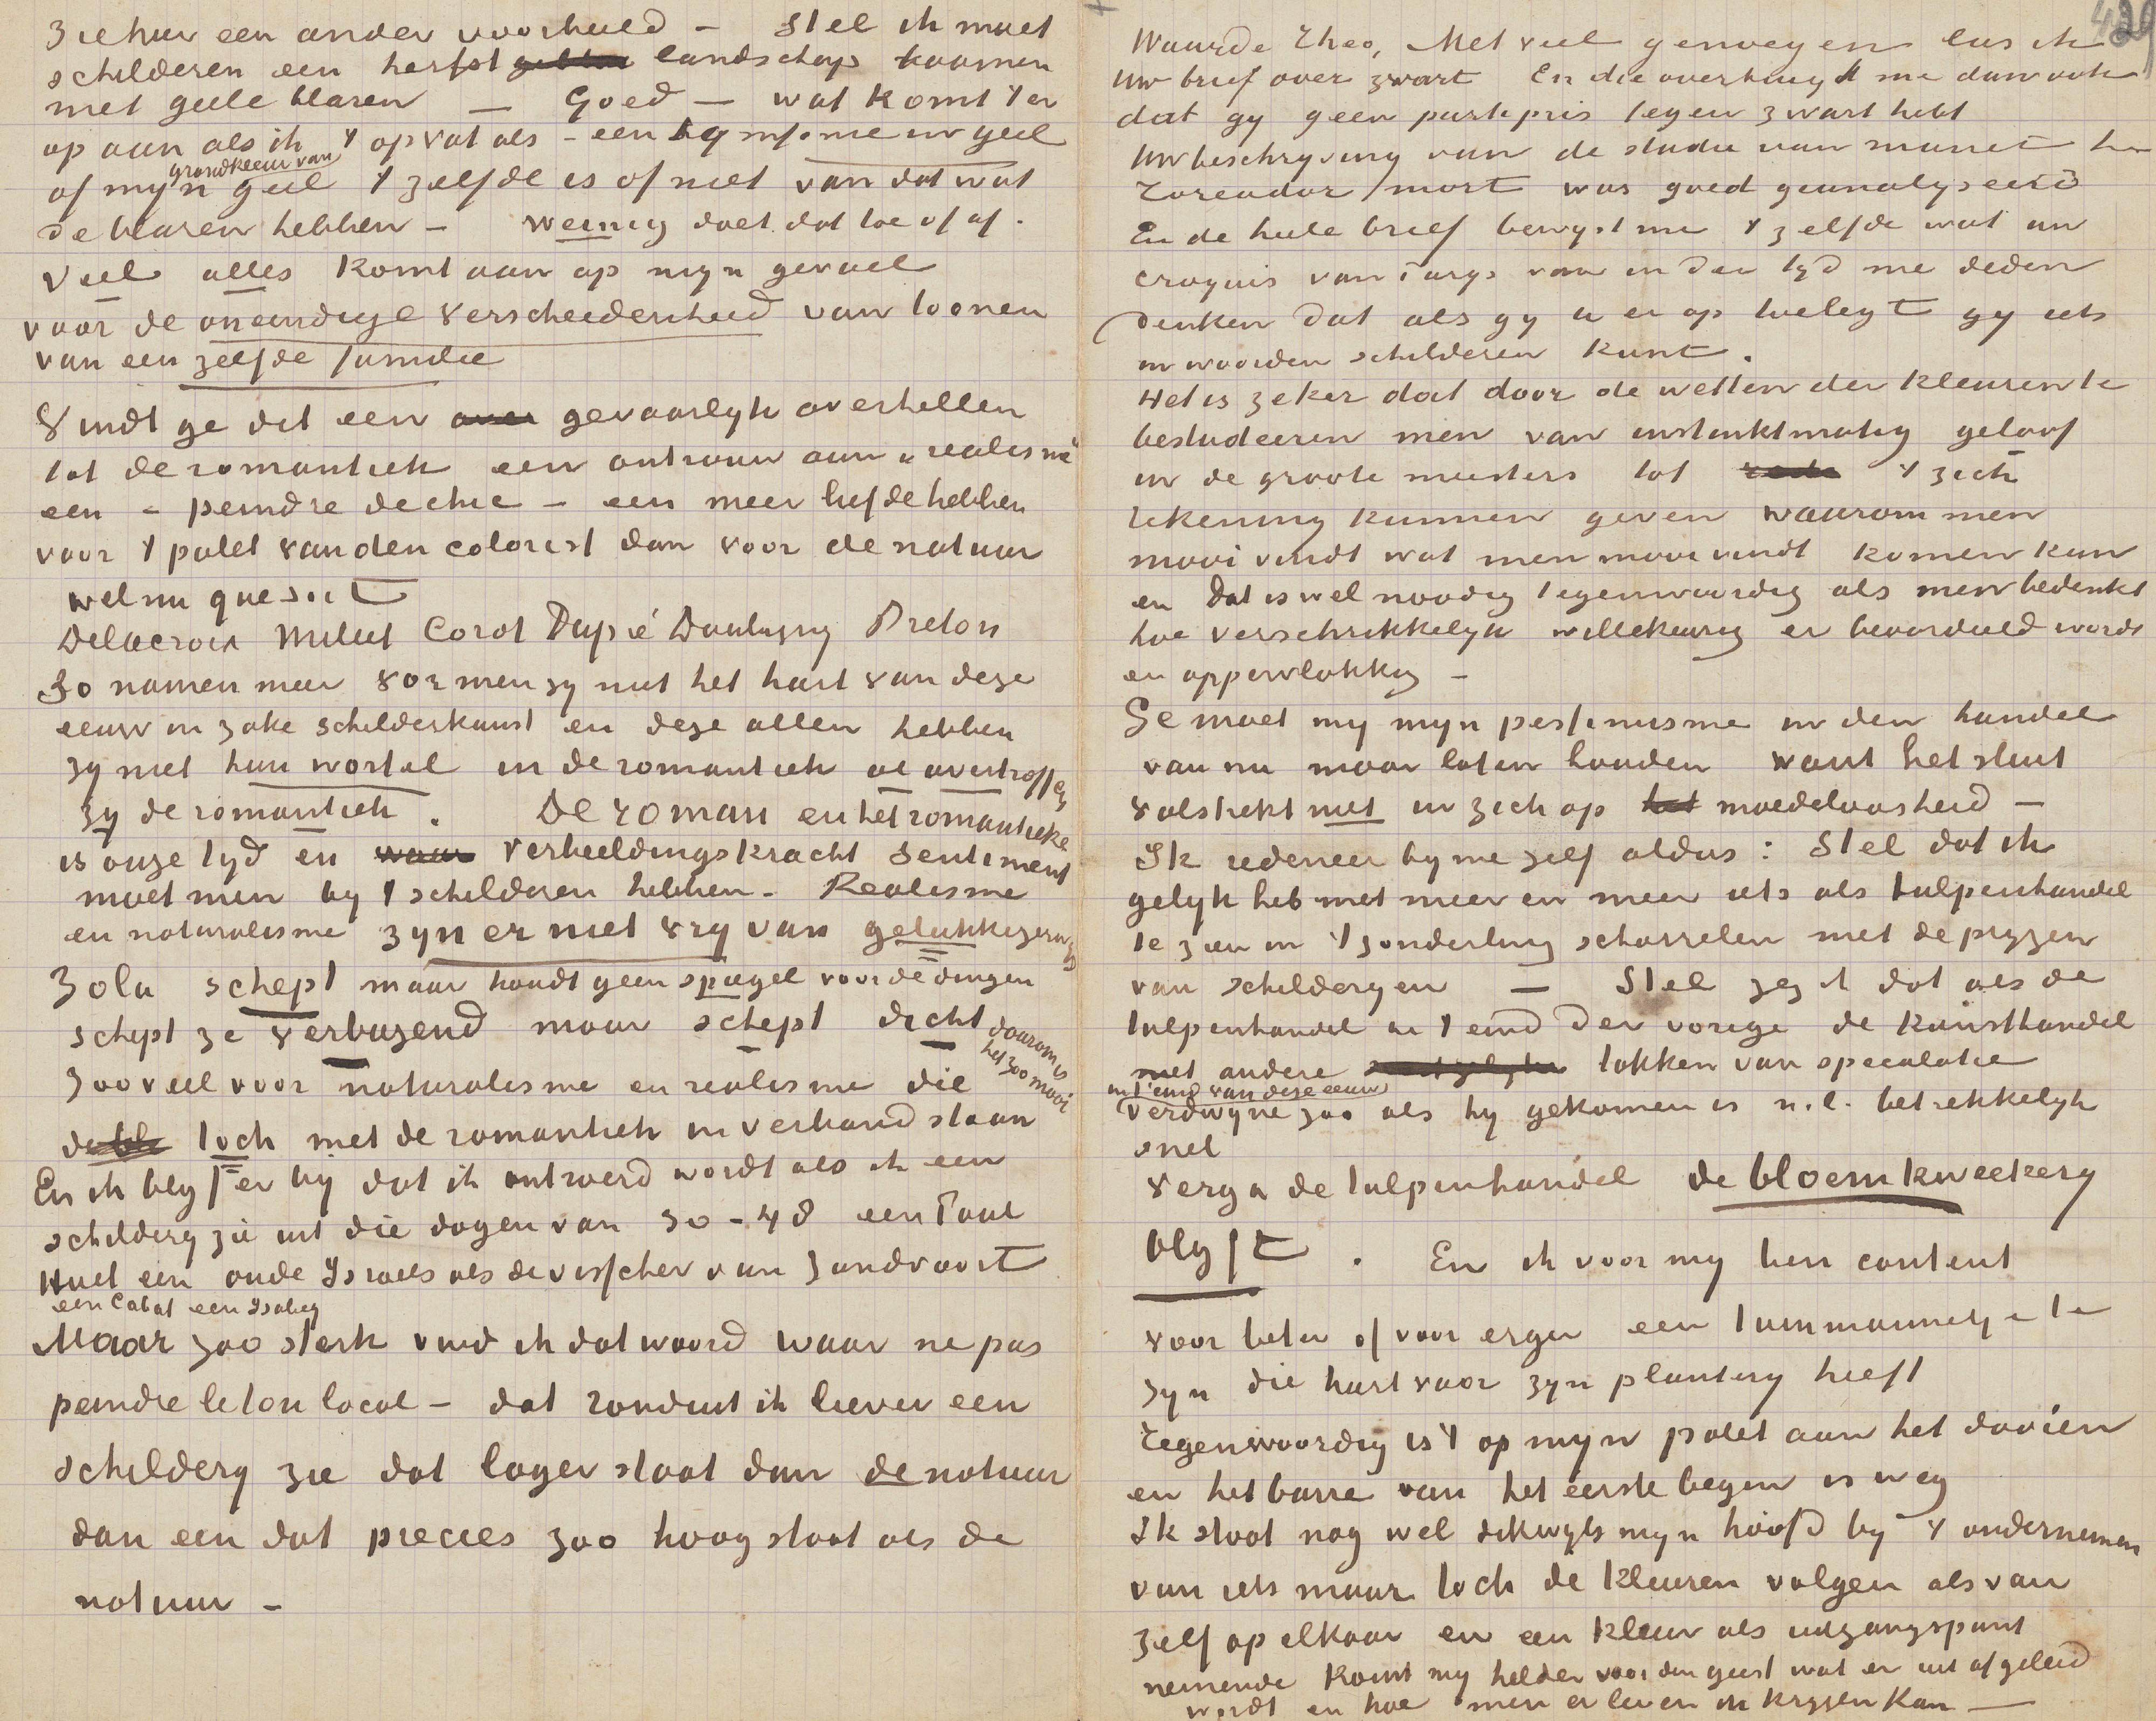 Ziehier een ander voorbeeld – Stel ik moet
schilderen een herfst landschap boomen
met geele blaren – Goed – wat komt 't er
op aan als ik 't opvat als – een symfonie in geel
grondkleur van
of mijn geel 't zelfde is of niet van dat wat
de blaren hebben – weinig doet dat toe of af.
Veel alles komt aan op mijn gevoel
voor de oneindige verscheidenheid van toonen
van een zelfde familie
Vindt ge dit een over gevaarlyk overhellen
tot de romantiek een ontrouw aan „realisme"
een – peindre de chic – een meer liefde hebben
voor 't palet van den colorist dan voor de natuur
welnu que soit
Delacroix Millet Corot Dupré Daubigny Breton
30 namen meer vormen zy niet het hart van deze
eeuw in zake schilderkunst en deze allen hebben
zy niet hun wortel in de romantiek al overtroffen
zy de romantiek. De roman en het romantieke
is onze tyd en waar verbeeldingskracht sentiment
moet men by 't schilderen hebben – Realisme
en naturalisme zyn er niet vry van gelukkigerwys
Zola schept maar houdt geen spiegel voor de dingen
schept ze verbazend maar schept dicht
daarom is
het zoo mooi
Zooveel voor naturalisme en realisme die
toch met de romantiek in verband staan
En ik blyf er bij dat ik ontroerd wordt als ik een
schildery zie uit die dagen van 30–48 een Paul
Huet een oude Israels als de visscher van Zandvoort
een Cabat een Isabey
Maar zoo sterk vind ik dat woord waar ne pas
peindre le ton local – dat ronduit ik liever een
schildery zie dat lager staat dan de natuur
dan een dat precies zoo hoog staat als de
natuur –
429
Waarde Theo, Met veel genoegen las ik
Uw brief over zwart En die overtuigt me dan ook
dat gy geen partepris tegen zwart hebt
Uw beschryving van de studie van Manet
Toreador mort was goed geanalyseerd
En de heele brief bewyst me 't zelfde wat uw
croquis van Parys in der tyd me deden
denken dat als gy u er op toelegt gy iets
in woorden schilderen kunt.
Het is zeker dat door de wetten der kleuren te
bestudeeren men van instinktmatig geloof
in de groote meesters tot 't zich
rekening kunnen geven waarom men
mooi vindt wat men mooi vindt komen kan
en dat is wel noodig tegenwoordig als men bedenkt
hoe verschrikkelyk willekeurig er beoordeeld wordt
en oppervlakkig –
Ge moet my myn pessimisme in den handel
van nu maar laten houden want het sluit
volstrekt niet in zich op het moedeloosheid –
Ik redeneer by me zelf aldus: Stel dat ik
gelyk heb met meer en meer iets als tulpenhandel
te zien in 't zonderling scharrelen met de pryzen
van schilderyen – Stel zeg ik dat als de
tulpenhandel in 't eind der vorige de kunsthandel
met andere takken van speculatie
in 't eind van deze eeuw
verdwyne zoo als hy gekomen is n.l. betrekkelyk
snel
Verga de tulpenhandel de bloemkweekery
blyft. En ik voor my ben content
voor beter of voor erger een tuinmannetje te
zyn die hart voor zyn plantery heeft
Tegenwoordig is 't op myn palet aan het dooien
en het barre van het eerste begin is weg
Ik stoot nog wel dikwyls myn hoofd by 't ondernemen
van iets maar toch de kleuren volgen als van
zelf op elkaar en een kleur als uitgangspunt
nemende komt my helder voor den geest wat er uit afgeleid
wordt en hoe men er leven in krygen kan –